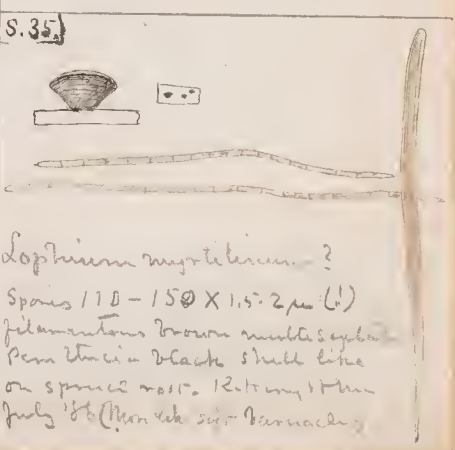 S. 35.
Lophium mytilinum ?
Spores 170 - 150 X 1.5-2 µ (!)
filamentous brown multiseptate
Perithecia black shell like
on spruce root. Kittery, Me
July '86